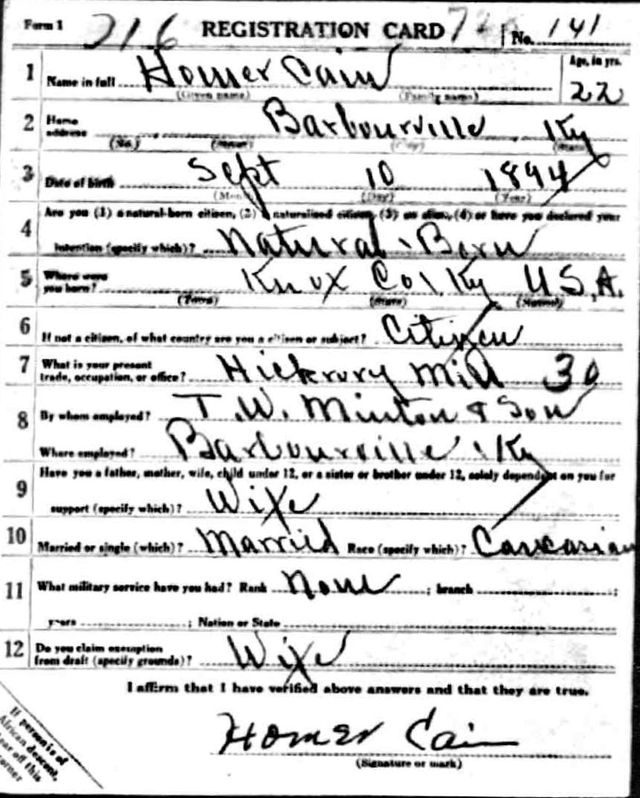 Form 1 216 REGISTRATION CARD No. 141
1 Name in full Homer Cain Age, in yrs. 22
(Given name) (Family name)
2 Home address Barbourville Ky
(No.) (Street) (City) (State)
3 Date of birth Sept 10 1894
(Month) (Day) (Year)
Are you (1) a natural-born citizen, (2) a naturalized citizen, (3) an alien, (4) or have you declared your
4 intention (specify which)? Natural Born
5 Where were you born? Knox Co. Ky U.S.A.
(Town) (State) (Nation)
6 If not a citizen, of what country are you a citizen or subject? Citizen
7 What is your present trade, occupation, or office? Hickrury Mill 30
8 By whom employed? T. W. Minton & Son
Where employed? Barbourville Ky
Have you a father, mother, wife, child under 12, or a sister or brother under 12, solely dependent on you for
9 support (specify which)? Wife
10 Married or single (which)? Married Race (specify which)? Caucasian
11 What military service have you had? Rank None ; branch ;
years ; Nation or State
12 Do you claim exemption from draft (specify grounds)? Wife
I affirm that I have verified above answers and that they are true.
Homer Cain
(Signature or mark)
If person is of
African descent,
tear off this
corner